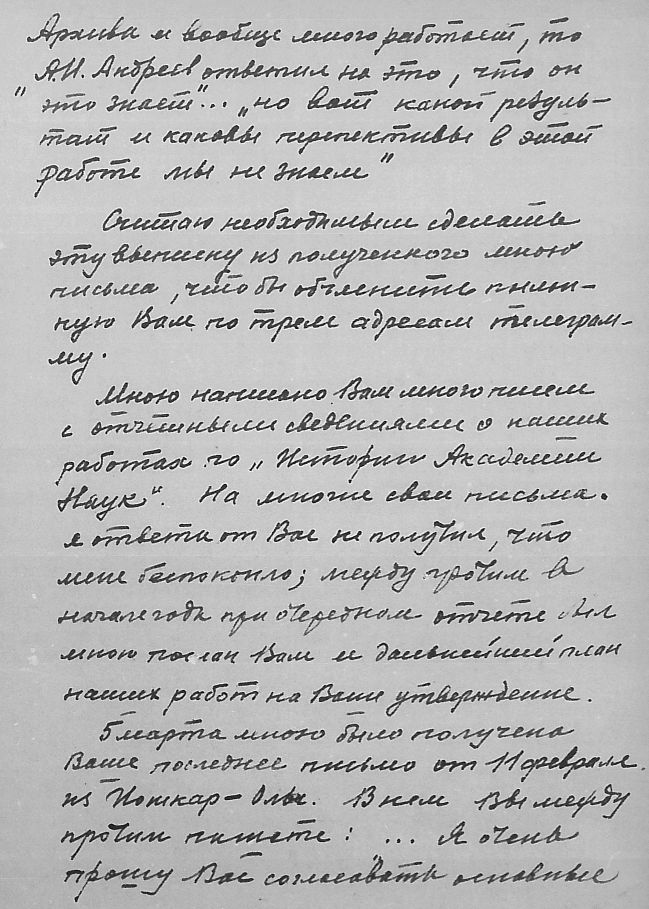 Архива и вообще много работает, то
А.И. Андреев ответил на это, что он
"это знает"... "но вот какой резуль-
тат и каковы перпективы в этой
работе мы не знаем"
Считаю необходимым сделать
эту выписку из полученного мною
письма, чтобы объяснить послан-
ную Вам по трем адресам телеграм-
му.
Мною написано Вам много писем
с отчетными сведениями о наших
работах по "Истории Академии
Наук". На многие свои письма
я ответа от Вас не получил, что
меня беспокоило; между прочим в
начале года при очередном отчете был
мною послан Вам и дальнейший план
наших работ на Ваше утверждение.
5 марта мною было получено
Ваше последнее письмо от 11 февраля
из Йошкар-Олы. В нем Вы между
прочим пишете: ... Я очень
прошу Вас согласовать основные